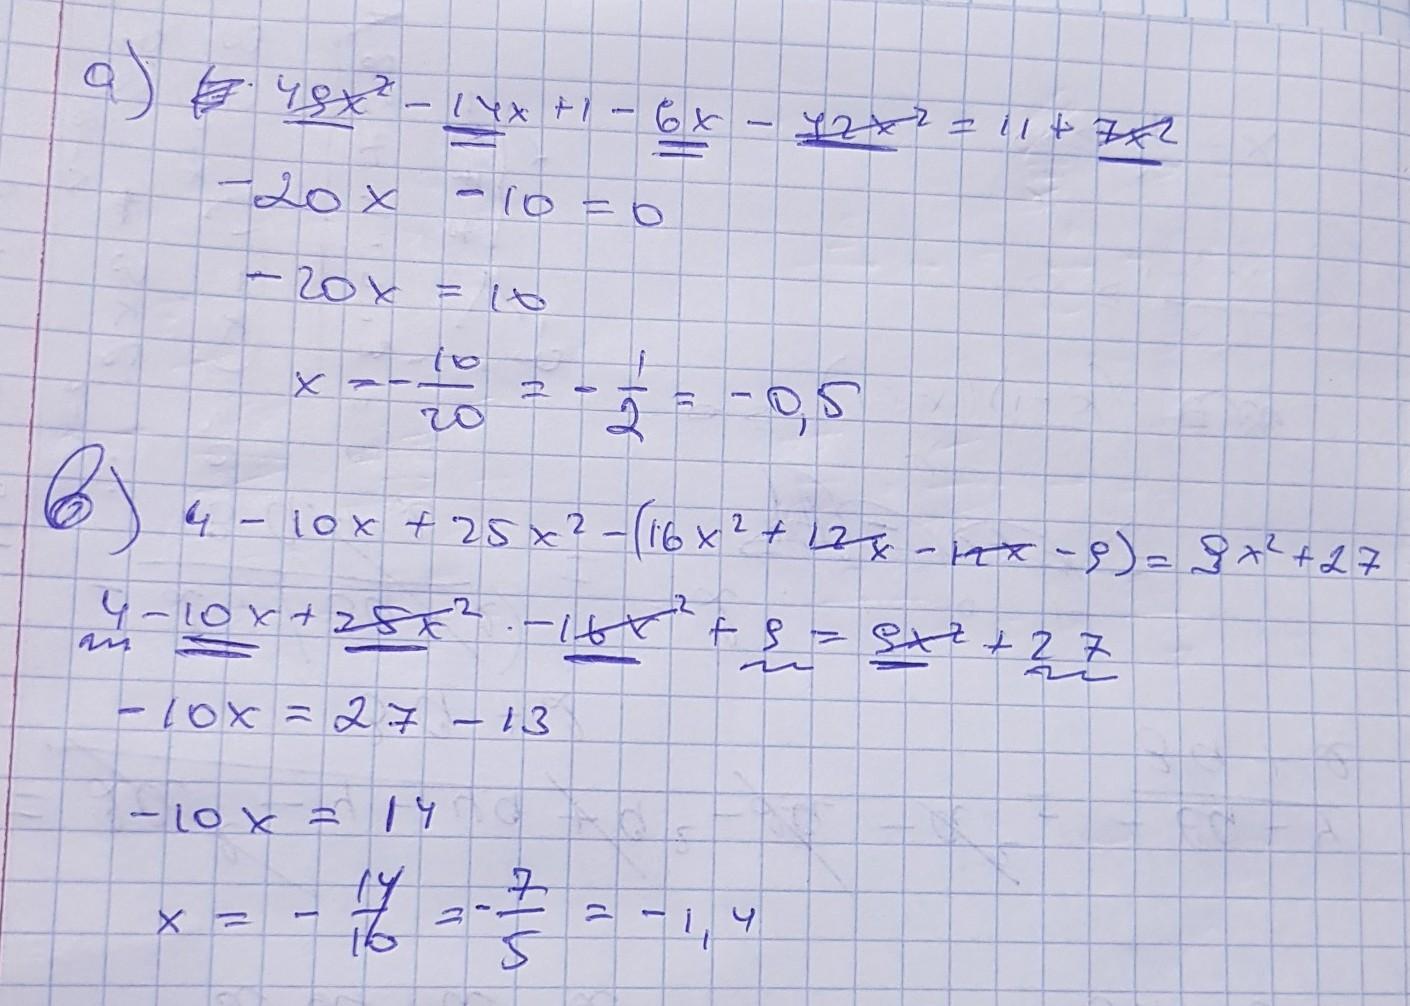 а) 49x² - 14x + 1 - 6x - 42x² = 11 + 7x²
-20x - 10 = 0
-20x = 10
x = - 10/20 = - 1/2 = -0,5
б) 4 - 10x + 25x² - (16x² + 12x - 12x - 9) = 9x² + 27
4 - 10x + 25x² - 16x² + 9 = 9x² + 27
-10x = 27 - 13
-10x = 14
x = - 14/10 = - 7/5 = -1,4